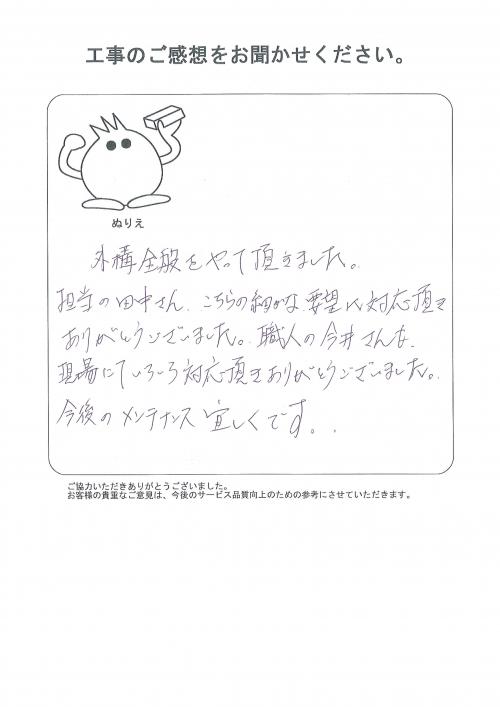 工事のご感想をお聞かせください。
ぬりえ
外構全般をやって頂きました。
担当の田中さん、こちらの細かな要望に対応頂き
ありがとうございました。職人の今井さんも、
現場にていろいろ対応頂きありがとうございました。
今後のメンテナンス宜しくです。.
ご協力いただきありがとうございました。
お客様の貴重なご意見は、今後のサービス品質向上のための参考にさせていただきます。